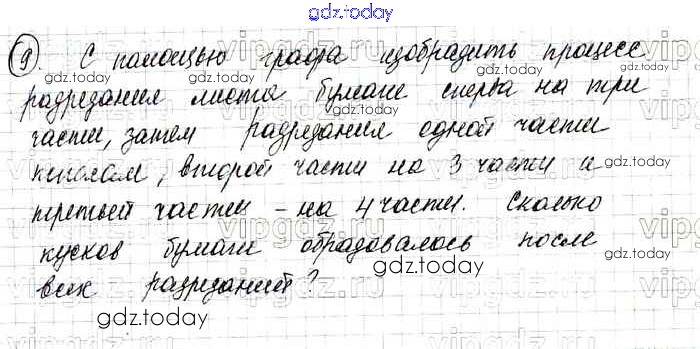 gdz.today
9. С помощью графа изобразить процесс
разрезания листа бумаги сперва на три
части, затем разрезания одной части
пополам, второй части на 3 части и
третьей части - на 4 части. Сколько
кусков бумаги образовалось после
всех разрезаний?
gdz.today
gdz.today
gdz.today
gdz.today
gdz.today
gdz.today
gdz.today
vipgdz.ru